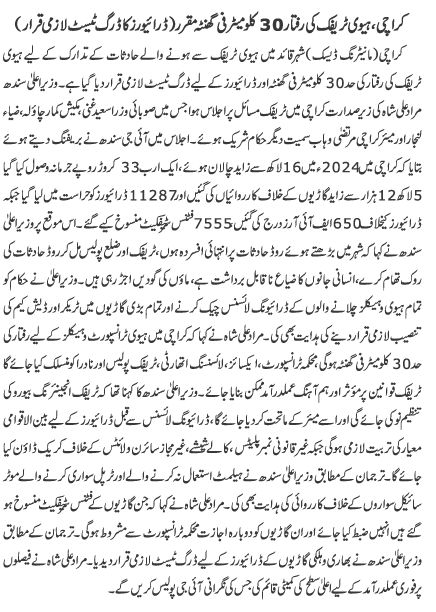 کراچی، ہیوی ٹریفک کی رفتار 30 کلومیٹر فی گھنٹہ مقرر (ڈرائیورز کا ڈرگ ٹیسٹ لازمی قرار)
کراچی (مانیٹرنگ ڈیسک) شہر قائد میں ہیوی ٹریفک سے ہونے والے حادثات کے تدارک کے لیے ہیوی
ٹریفک کی رفتار کی حد 30 کلومیٹر فی گھنٹہ اور ڈرائیورز کے لیے ڈرگ ٹیسٹ لازمی قرار دیا گیا ہے۔ وزیراعلیٰ سندھ
مراد علی شاہ کی زیر صدارت کراچی میں ٹریفک مسائل پر اجلاس ہوا جس میں صوبائی وزرا سعید غنی، مکیش کمار چاؤلہ، ضیاء
لنجار اور میئر کراچی مرتضیٰ وہاب سمیت دیگر حکام شریک ہوئے۔ اجلاس میں آئی جی سندھ نے بریفنگ دیتے ہوئے
بتایا کہ کراچی میں 2024ء میں 16 لاکھ سے زاید چالان ہوئے، ایک ارب 33 کروڑ روپے جرمانہ وصول کیا گیا
5 لاکھ 12 ہزار سے زاید گاڑیوں کے خلاف کارروائیاں کی گئیں اور 11287 ڈرائیورز کو حراست میں لیا گیا جبکہ
ڈرائیورز کیخلاف 650 ایف آئی آرز درج کی گئیں، 7555 فٹنس سرٹیفکیٹ منسوخ کیے گئے۔ اس موقع پر وزیراعلیٰ
سندھ نے کہا کہ شہر میں بڑھتے ہوئے روڈ حادثات پر انتہائی افسردہ ہوں، ٹریفک اور ضلع پولیس مل کر روڈ حادثات کی
روک تھام کرے، انسانی جانوں کا ضیاع ناقابل برداشت ہے، ماؤں کی گودیں اجڑ رہی ہیں۔ وزیراعلیٰ نے حکام کو
تمام ہیوی وہیکلز چلانے والوں کے ڈرائیونگ لائسنس چیک کرنے اور تمام بڑی گاڑیوں میں ٹریکر اور ڈیش کیم کی
تنصیب لازمی قرار دینے کی ہدایت بھی کی۔ مراد علی شاہ نے کہا کہ کراچی میں ہیوی ٹرانسپورٹ وہیکلز کے لیے رفتار کی
حد 30 کلومیٹر فی گھنٹہ ہوگی، محکمہ ٹرانسپورٹ، ایکسائز، لائسنسنگ اتھارٹی، ٹریفک پولیس اور نادرا کو منسلک کیا جائے گا
ٹریفک قوانین پر مؤثر اور ہم آہنگ عملدرآمد ممکن بنایا جائے۔ وزیراعلیٰ سندھ کا کہنا تھا کہ ٹریفک انجینئرنگ بیورو کی
تنظیم نو کی جائے گی اور اسے میئر کے ماتحت کر دیا جائے گا، ڈرائیونگ لائسنس سے قبل ڈرائیورز کے لیے بین الاقوامی
معیار کی تربیت لازمی ہوگی جبکہ غیر قانونی نمبر پلیٹس، کالے شیشے، غیر مجاز سائرن ولائٹس کے خلاف کریک ڈاؤن کیا
جائے گا۔ ترجمان کے مطابق وزیراعلیٰ سندھ نے ہیلمٹ استعمال نہ کرنے والے اور ٹرپل سواری کرنے والے موٹر
سائیکل سواروں کے خلاف کارروائی کی ہدایت بھی کی۔ مراد علی شاہ نے کہا کہ جن گاڑیوں کے فٹنس سرٹیفکیٹ منسوخ ہو
گئے ہیں انہیں ضبط کیا جائے اور ان گاڑیوں کو دوبارہ اجازت محکمہ ٹرانسپورٹ سے مشروط ہوگی۔ ترجمان کے مطابق
وزیراعلیٰ سندھ نے بھاری و ہلکی گاڑیوں کے ڈرائیورز کے لیے ڈرگ ٹیسٹ لازمی قرار دیدیا۔ مراد علی شاہ نے فیصلوں
پر فوری عملدرآمد کے لیے اعلیٰ سطح کی کمیٹی قائم کی جس کی نگرانی آئی جی پولیس کریں گے۔